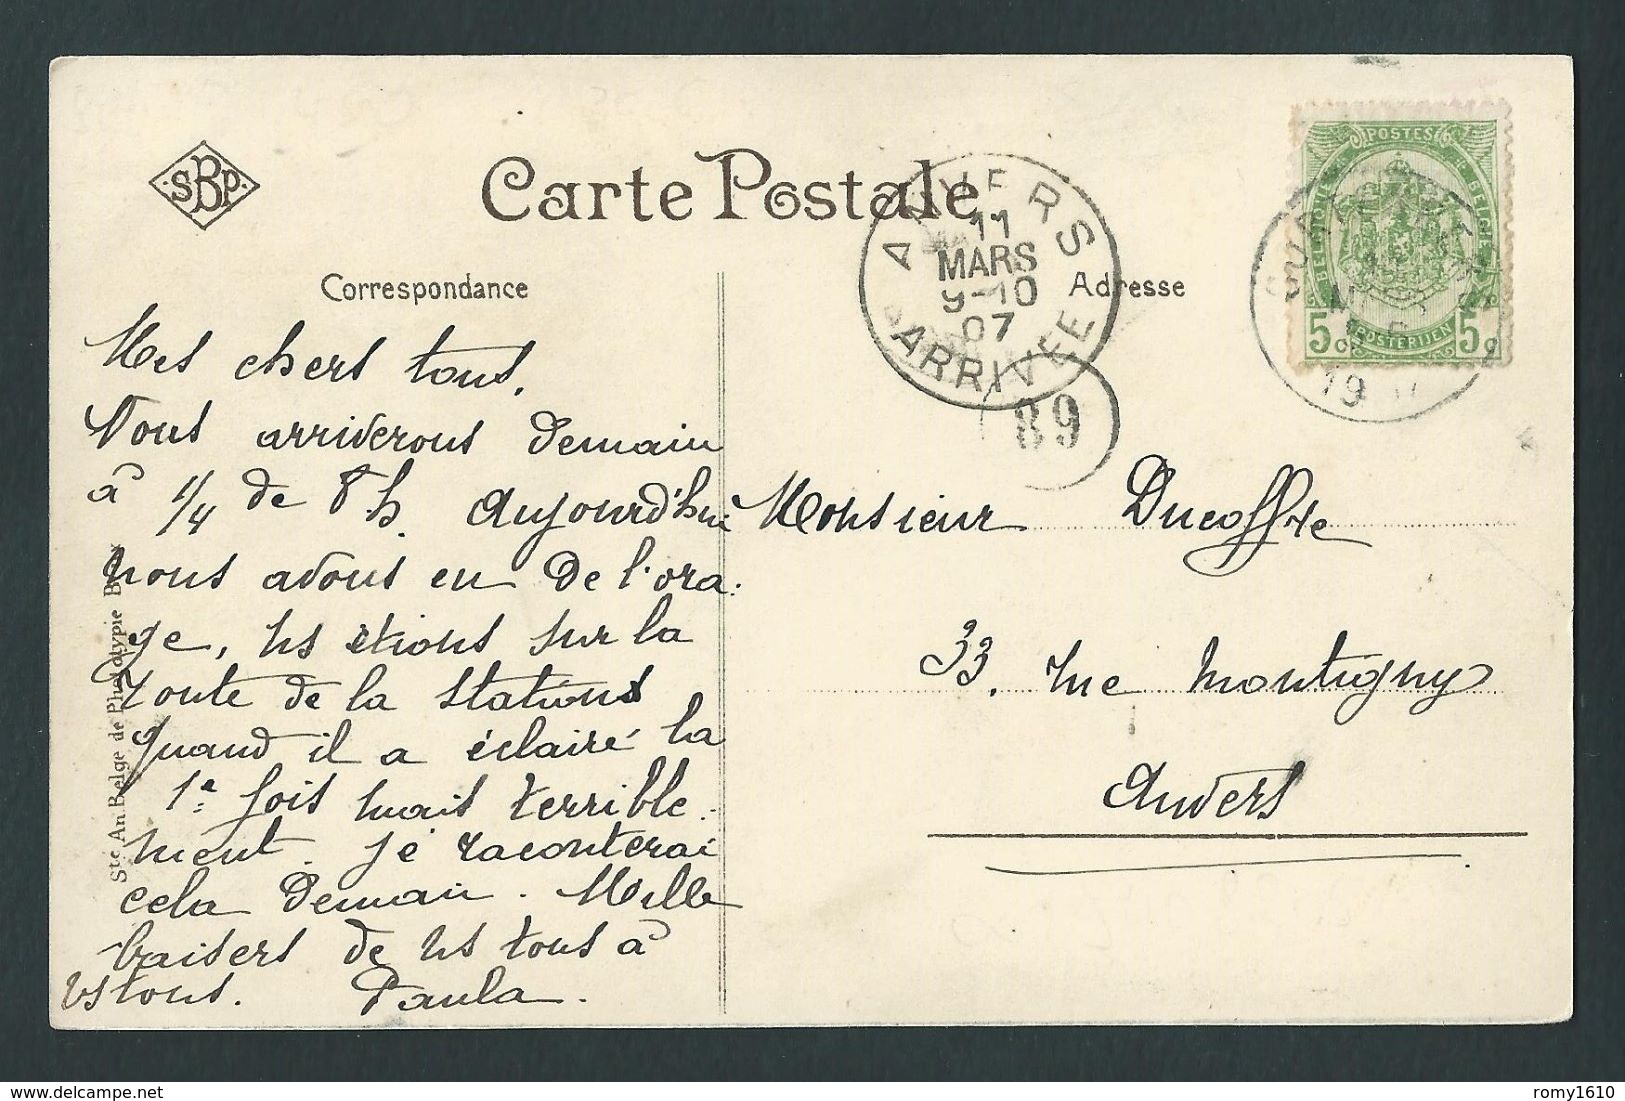 SBP
Carte Postale
Correspondance
Adresse
ANVERS
11
MARS
9-10
07
ARRIVÉE
89
POSTES
BELGIQUE
BELGIË
5 c
5 c
POSTERIJEN
19
Mes chers tous,
Nous arriverons demain
à 1/4 de 8 h. Aujourd'hui
nous avons eu de l'ora-
ge, ns étions sur la
route de la station
quand il a éclairé la
1e fois mais terrible-
ment. Je raconterai
cela demain. Mille
baisers de ns tous à
vs tous. Paula.
Monsieur Ducoffre
33, rue Montigny
Anvers
Sté An. Belge de Phototypie Brux
romy1610